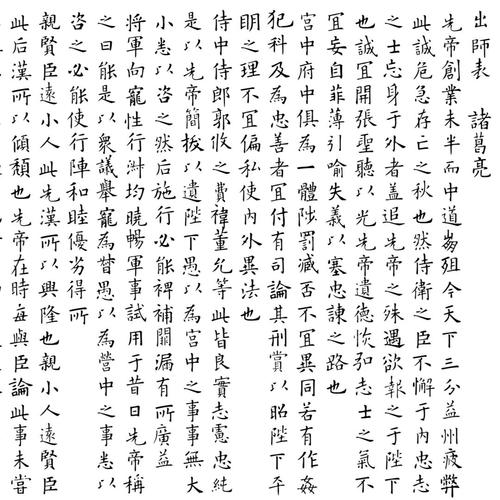 出師表　諸葛亮
先帝創業未半而中道崩殂今天下三分益州疲弊
此誠危急存亡之秋也然侍衛之臣不懈于內忠志
之士忘身于外者盖追先帝之殊遇欲報之于陛下
也誠冝開張聖聽以光先帝遺德恢弘志士之氣不
冝妄自菲薄引喻失義以塞忠諫之路也
宮中府中俱為一體陟罰臧否不冝異同若有作姦
犯科及為忠善者冝付有司論其刑賞以昭陛下平
眀之理不冝偏私使內外異法也
侍中侍郎郭攸之費禕董允等此皆良實志慮忠純
是以先帝簡拔以遺陛下愚以為宮中之事事無大
小悉以咨之然后施行必能裨補闕漏有所廣益
將軍向寵性行淑均曉暢軍事試用于昔日先帝稱
之曰能是以衆議舉寵為督愚以為營中之事悉以
咨之必能使行陣和睦優劣得所
親賢臣遠小人此先漢所以興隆也親小人遠賢臣
此后漢所以傾頹也先帝在時每與臣論此事未嘗